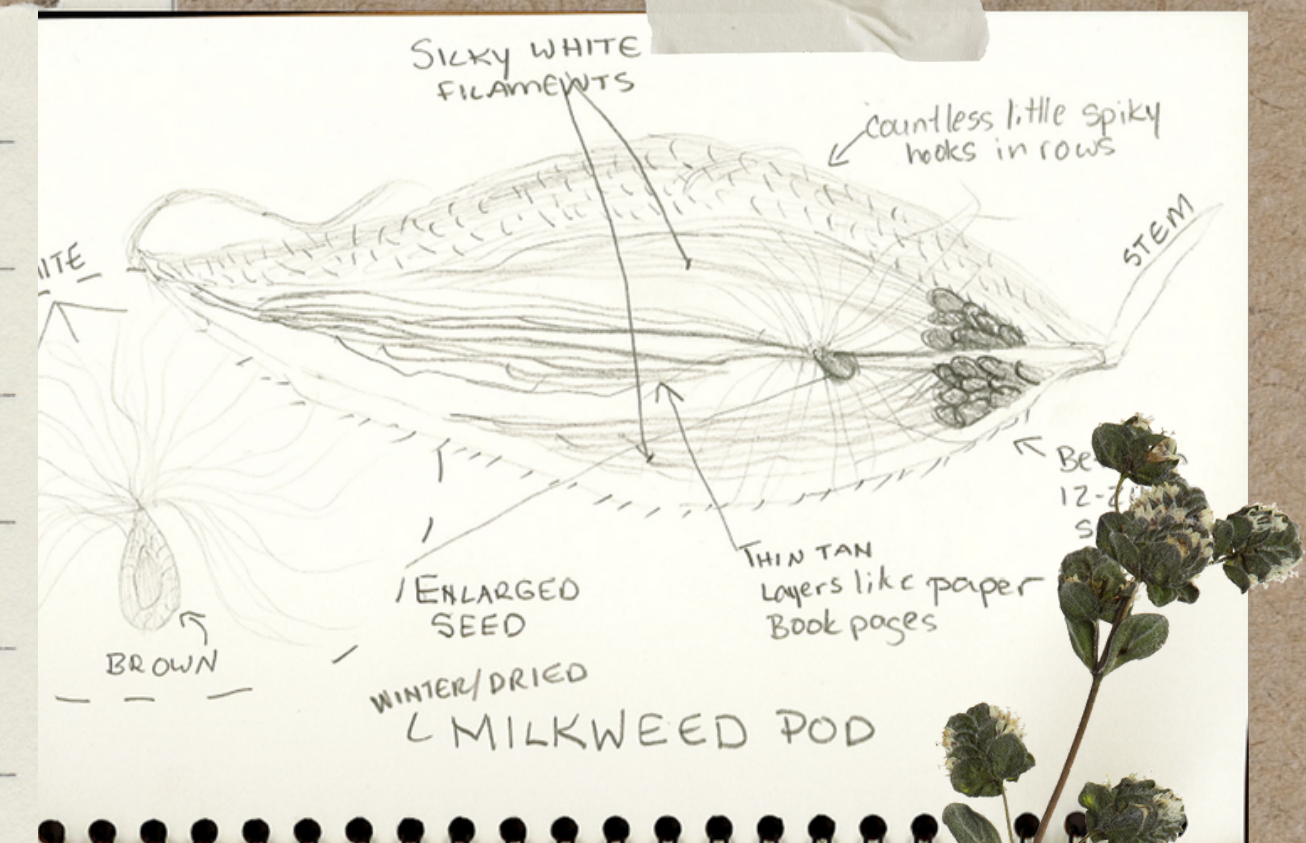 SILKY WHITE
FILAMENTS
countless little spiky
hooks in rows
STEM
THIN TAN
Layers like paper
Book pages
ENLARGED
SEED
BROWN
WINTER/DRIED
MILKWEED POD